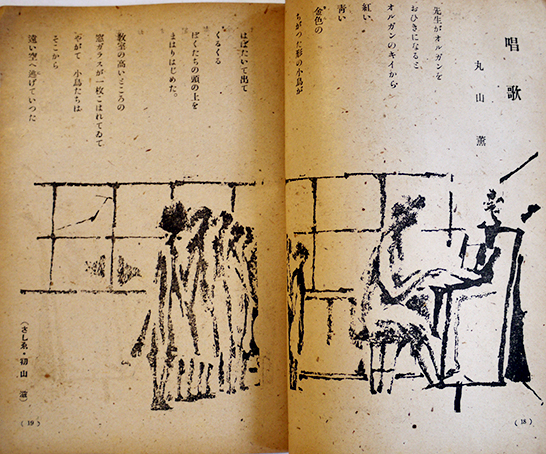 唱歌
丸山薫
先生がオルガンを
おひきになると
オルガンのキイから
紅い
青い
金色の
ちがつた形の小鳥が
(18)
はばたいて出て
くるくる
ぼくたちの頭の上を
まはりはじめた。
教室の高いところの
窓ガラスが一枚こはれてゐて
やがて 小鳥たちは
そこから
遠い空へ逃げていつた
(さしゑ・初山滋)
(19)